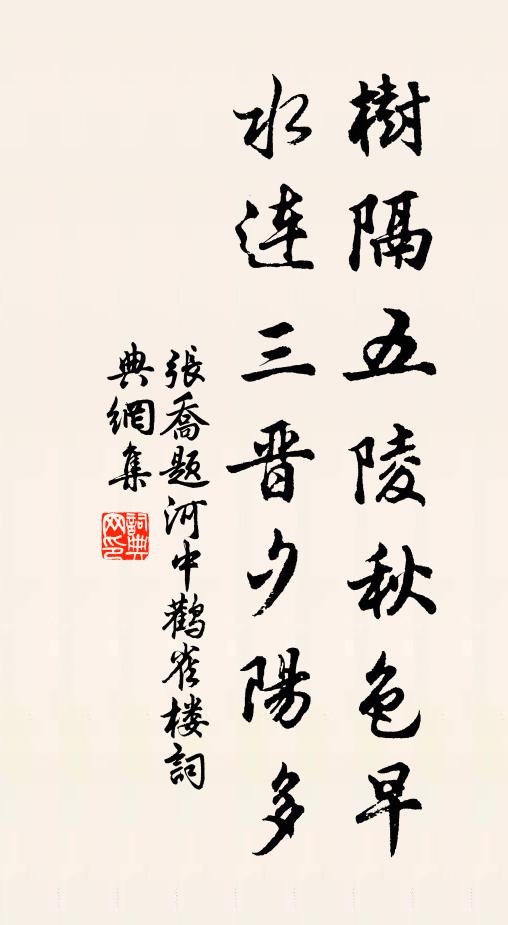 樹隔五陵秋色早
水连三晋夕陽多
張喬题河中鹳雀楼詞
典網集
詞典网印